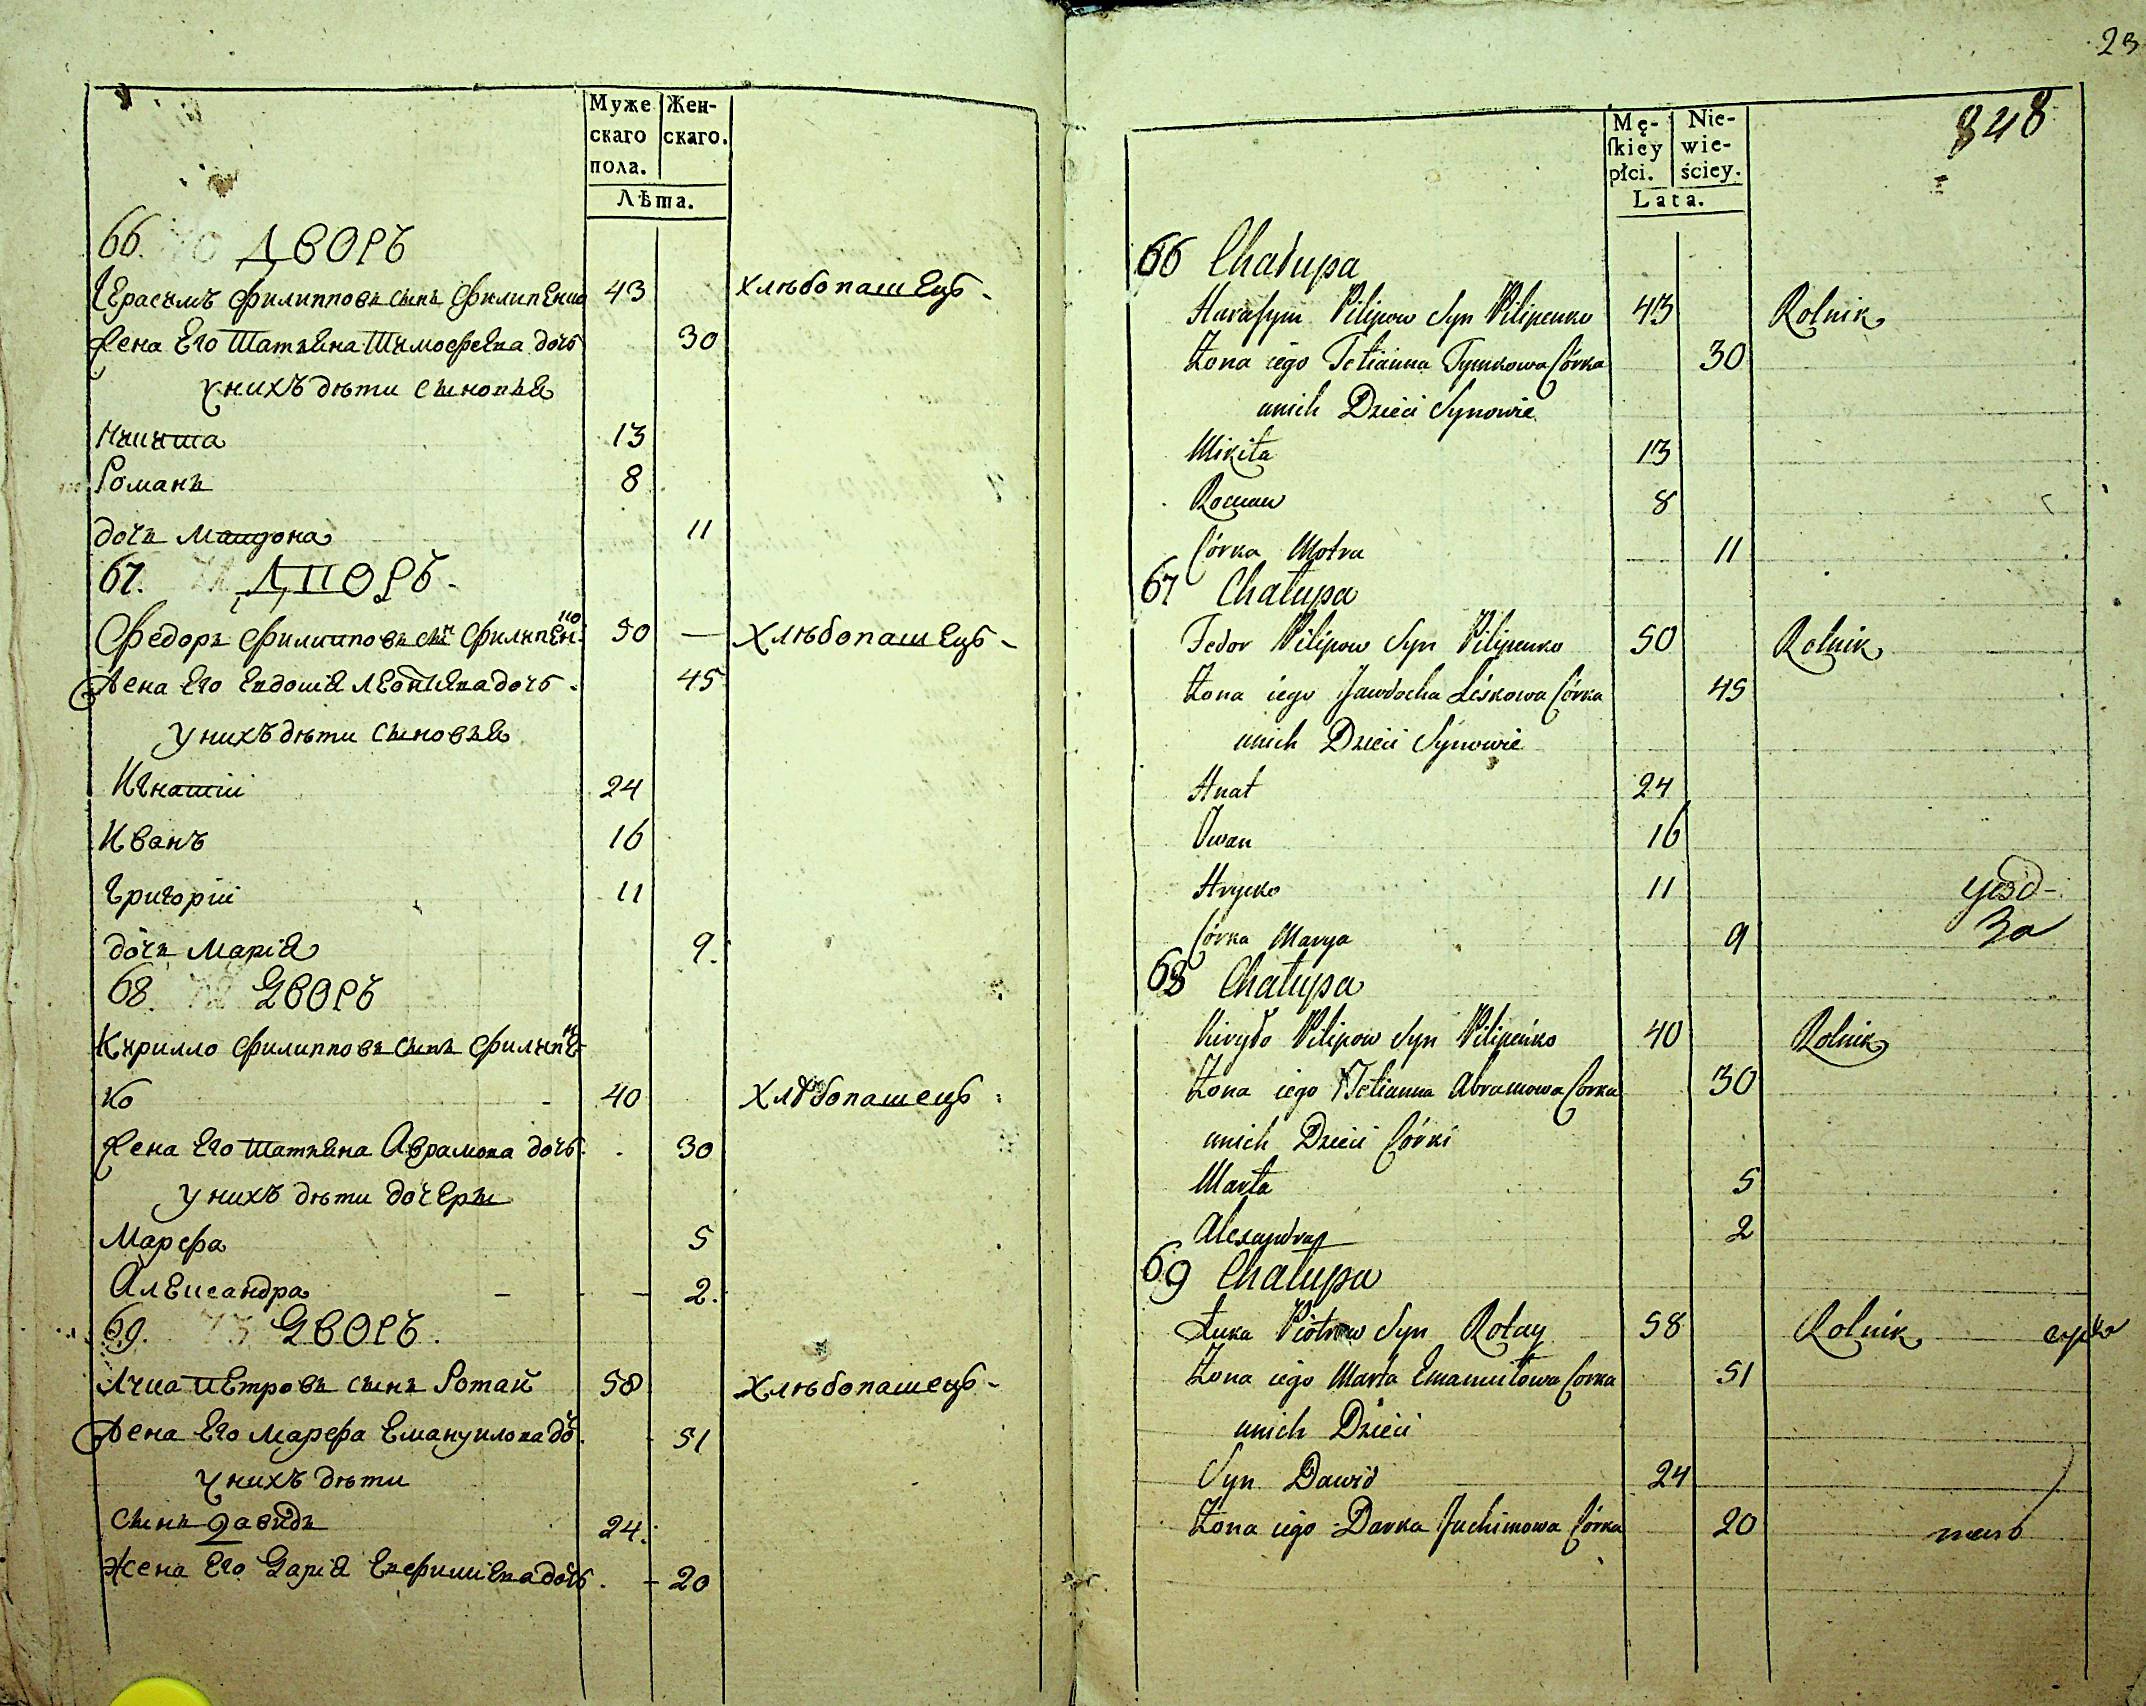 Муже Жен-
скаго скаго.
пола.
Лѣта.
66. 70 ДВОРЪ
Герасимъ Филипповъ сынъ Филипенко 43 хлѣбопашецъ
Жена Его Татьяна Тимофеева дочь 30
у нихъ дѣти сыновья
Никита 13
Романъ 8
дочь Матрона 11
67. 71 ДВОРЪ
Федоръ Филипповъ сынъ Филипенко 50 — хлѣбопашецъ
Жена Его Евдокія Леонтіева дочь 45
у нихъ дѣти сыновья
Игнатій 24
Иванъ 16
Григорій 11
дочь Марія 9.
68. 72 ДВОРЪ
Кирилло Филипповъ сынъ Филипен
ко 40 хлѣбопашецъ
Жена Его Татьяна Аврамова дочь 30
у нихъ дѣти дочеры
Марфа 5
Александра 2.
69. 73 ДВОРЪ.
Лука Петровъ сынъ Ротай 58 хлѣбопашецъ
Жена Его Марфа Емануилова доч. 51
у нихъ дѣти
сынъ Давидъ 24.
Жена Его Дарія Евфиміева дочь 20
23
848
Mę- Nie-
ſkiey wie-
płci. ściey.
Lata.
66 Chałupa
Harasym Pilipow Syn Pilipenko 43 Rolnik
Zona iego Tetianna Tymkowa Córka 30
unich Dzieci Synowie
Mikita 13
Roman 8
Córka Motra 11
67 Chałupa
Fedor Pilipow Syn Pilipenko 50 Rolnik
Zona iego Jawdocha Leśkowa Córka 45
unich Dzieci Synowie
Hnat 24
Iwan 16
Hrycko 11
Córka Marya 9
68 Chałupa
Kiryło Pilipow Syn Pilipenko 40 Rolnik
Zona iego Tetianna Abramowa Corka 30
unich Dzieci Córki
Marta 5
Alexandra 2
69 Chałupa
Łuka Piotrow Syn Rotay 58 Rolnik
Zona iego Marta Emanuiłowa Corka 51
unich Dzieci
Syn Dawid 24
Zona iego Darka Juchimowa Córka 20